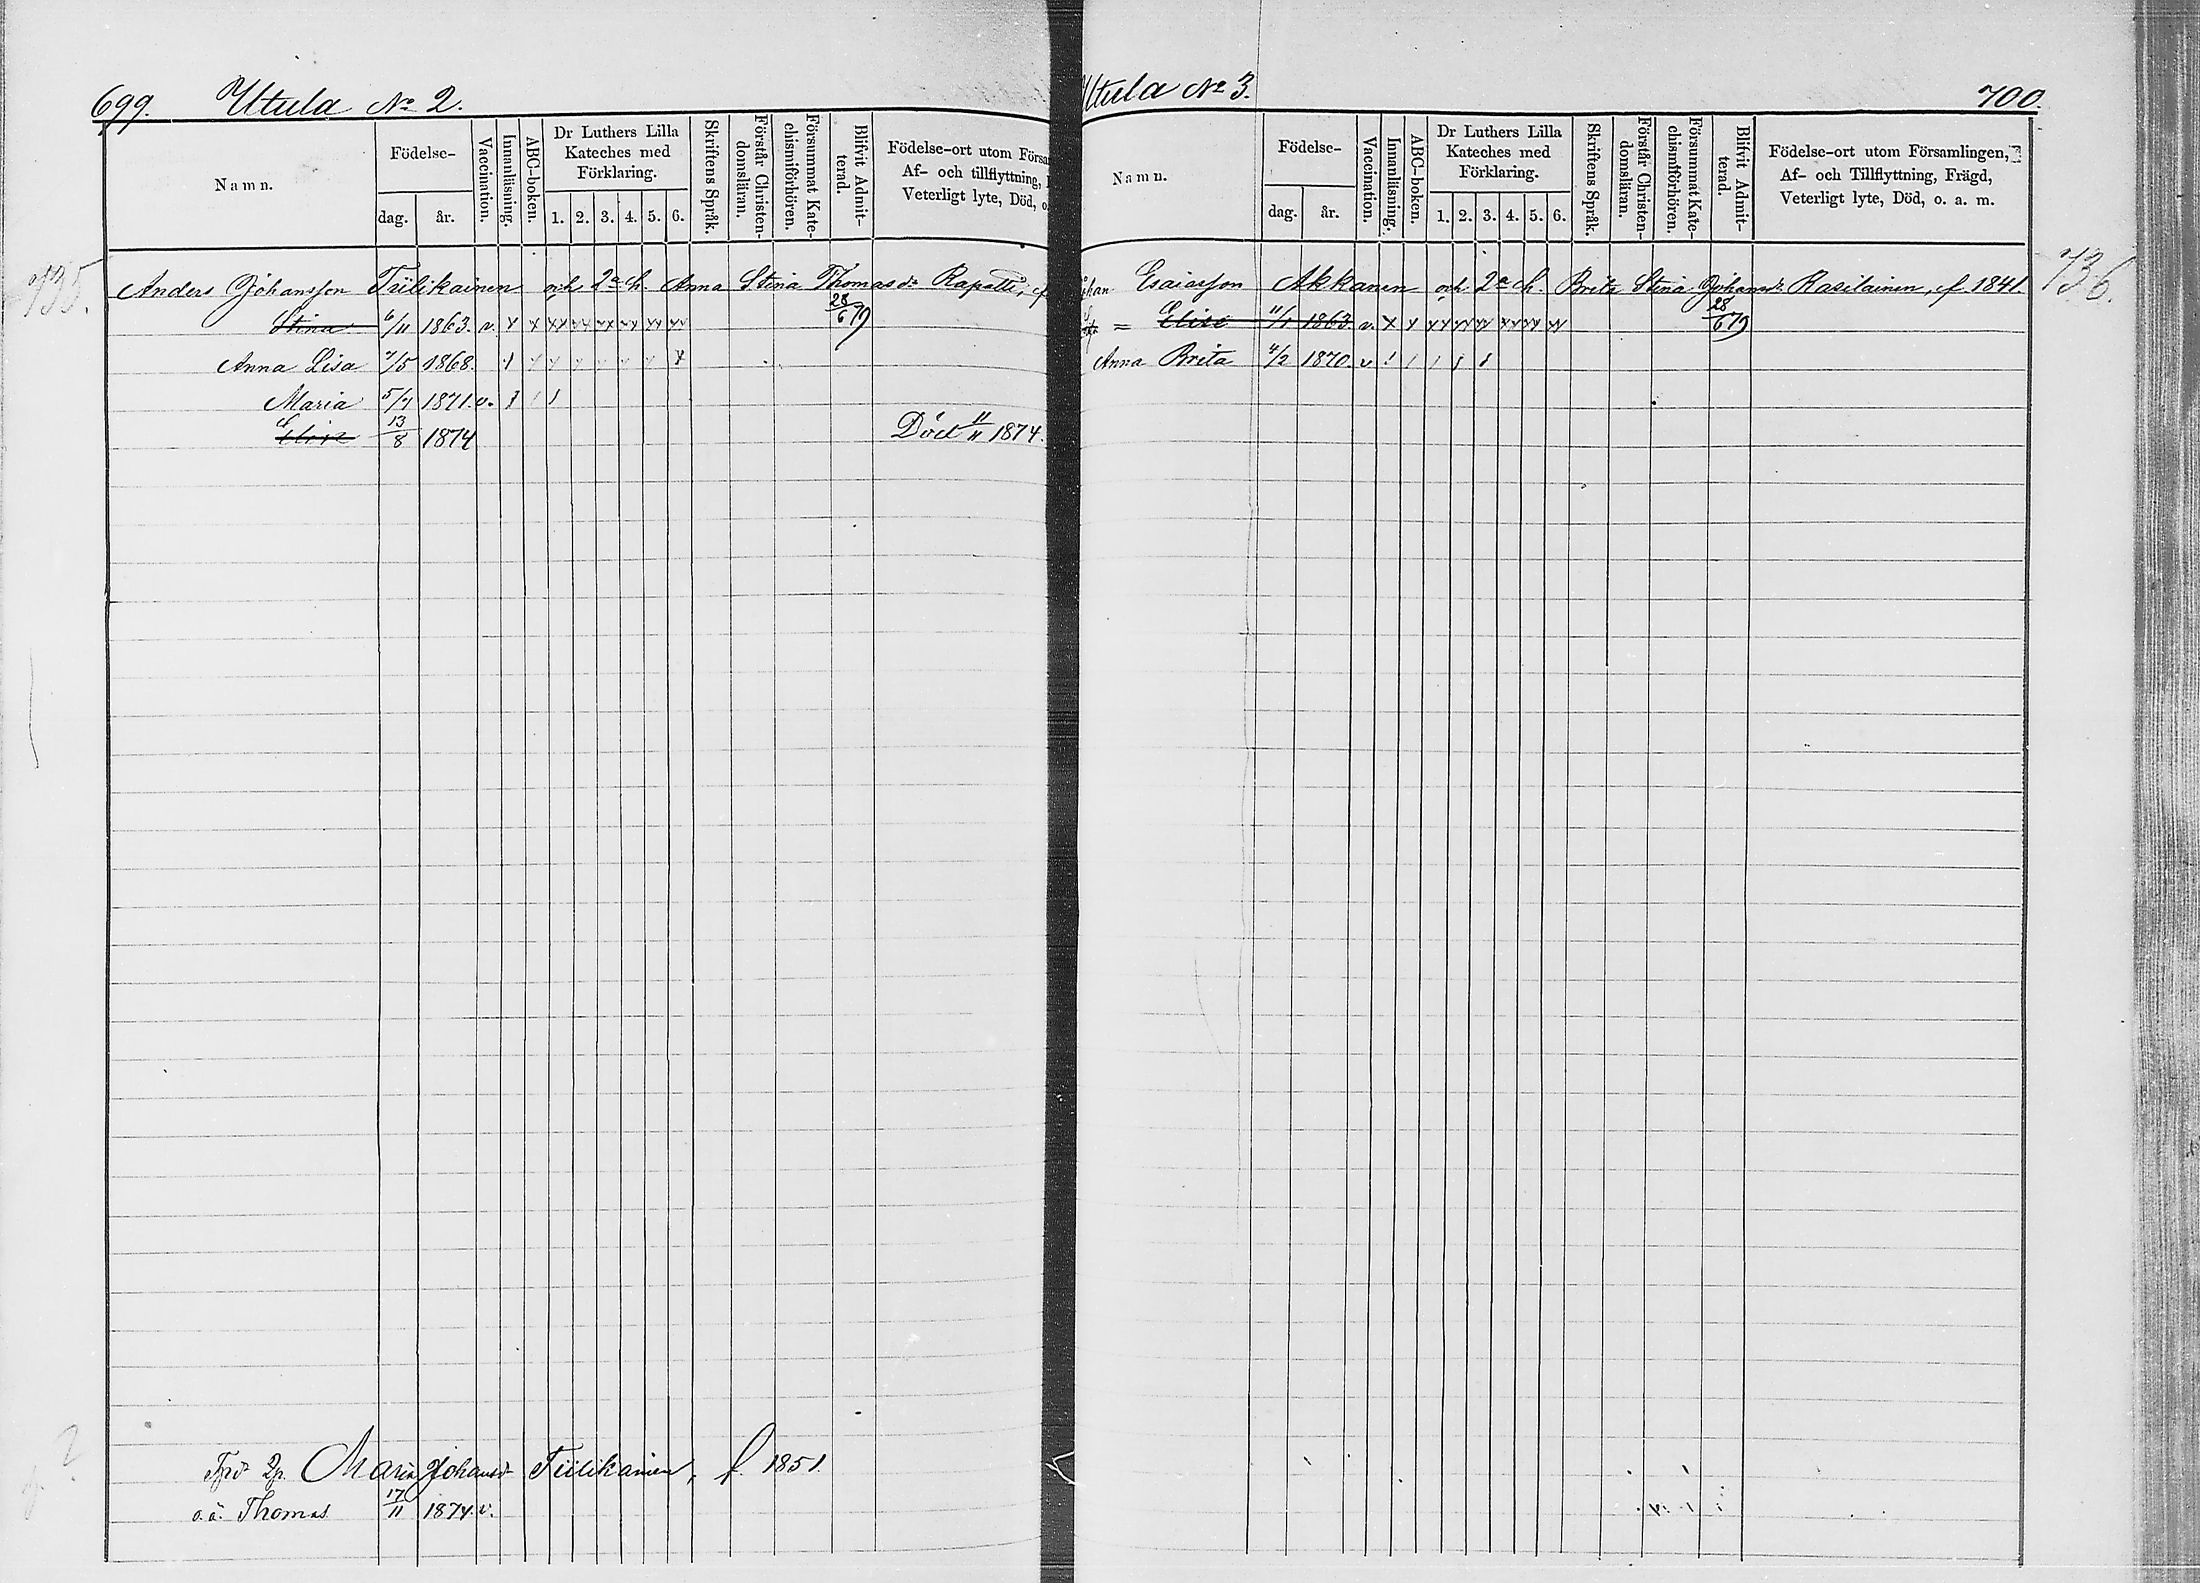 699. Utula No 2.
Namn.
Födelse-
dag. år.
Vaccination.
Innanläsning.
ABC-boken.
Dr Luthers Lilla
Kateches med
Förklaring.
1. 2. 3. 4. 5. 6.
Skriftens Språk.
Förstår Christen-
domsläran.
Försummat Kate-
chismiförhören.
Blifvit Admit-
terad.
Födelse-ort utom Försa
Af- och tillflyttning,
Veterligt lyte, Död, o
735.
Anders Johansson Tiilikainen och 2a h. Anna Stina Thomasdr Rapatti, f
Stina 6/11 1863. v. 28/6 79
Anna Lisa 7/5 1868.
Maria 5/7 1871. v.
Elise 13/8 1874 Död 11/11 1874.
Maria Johansdr Tiilikainen, f. 1851.
o.ä. Thomas 17/11 1874. v.
Utula No 3. 700.
Namn.
Födelse-
dag. år.
Vaccination.
Innanläsning.
ABC-boken.
Dr Luthers Lilla
Kateches med
Förklaring.
1. 2. 3. 4. 5. 6.
Skriftens Språk.
Förstår Christen-
domsläran.
Försummat Kate-
chismiförhören.
Blifvit Admit-
terad.
Födelse-ort utom Församlingen,
Af- och Tillflyttning, Frägd,
Veterligt lyte, Död, o. a. m.
736.
Johan Esaiasson Akkanen och 2a h. Brita Stina Johansdr Rasilainen, f 1841.
= Elise 11/1 1863 v. 28/6 79
Anna Brita 4/2 1870. v